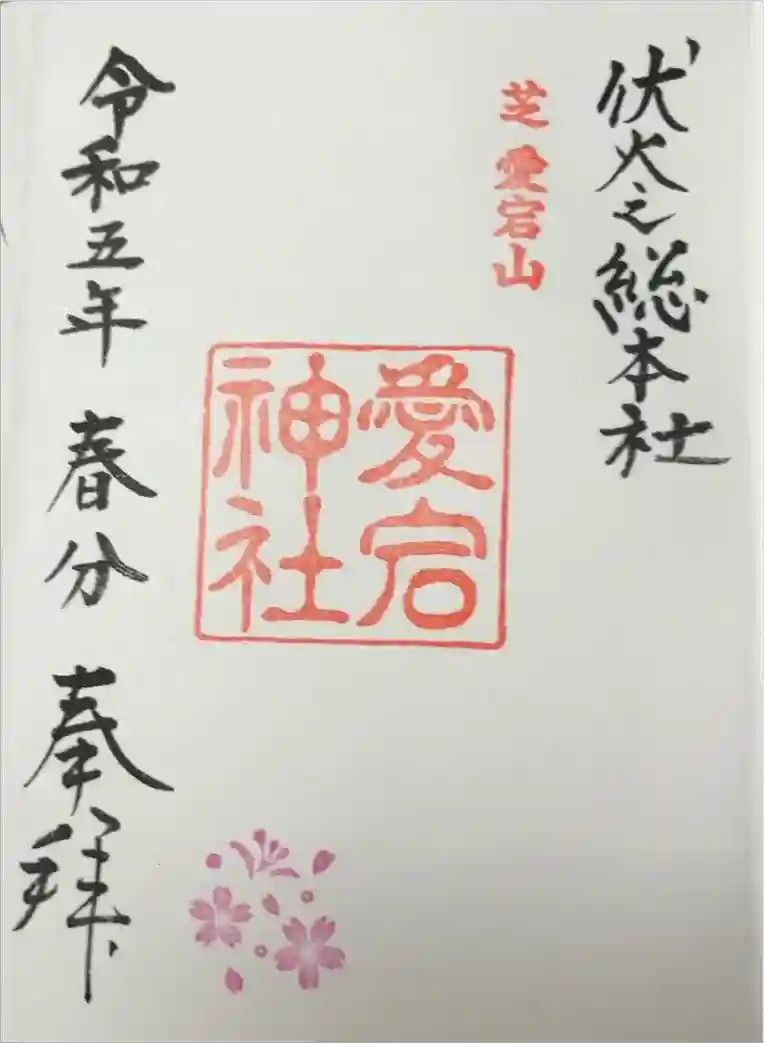 伏火之総本社
芝 愛宕山
愛宕
神社
令和五年 春分 奉拝